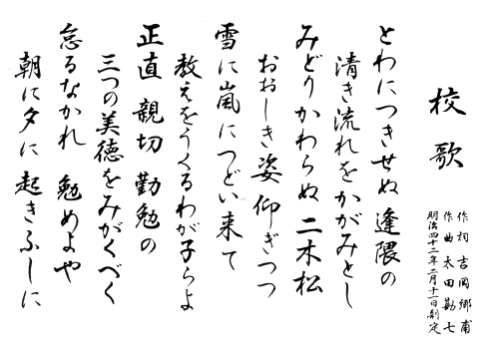 校歌
作詞 吉岡郷甫
作曲 太田勘七
明治四十二年二月十一日制定
とわにつきせぬ 逢隈の
清き流れをかがみとし
みどりかわらぬ 二木松
おおしき姿 仰ぎつつ
雪に嵐につどい来て
教えをうくるわが子らよ
正直 親切 勤勉の
三つの美徳をみがくべく
怠るなかれ 勉めよや
朝に夕に 起きふしに